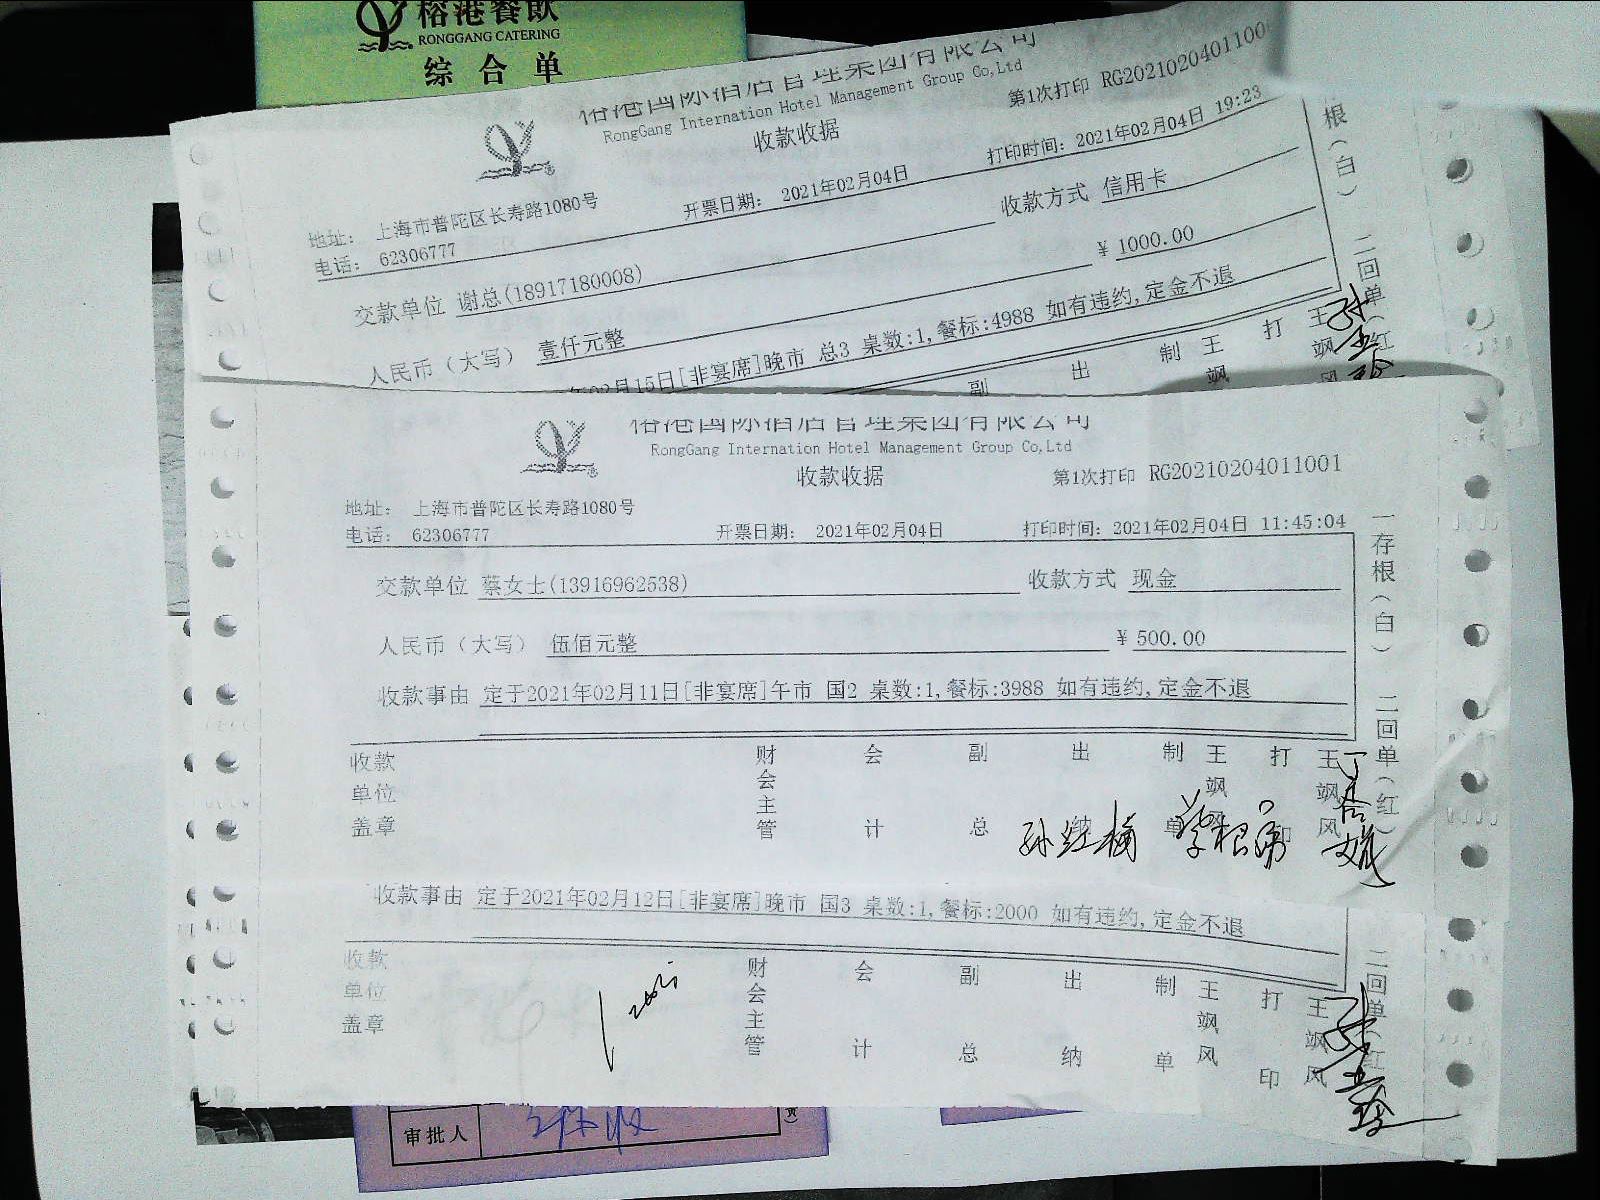 榕港餐飲
RONGGANG CATERING
综合单
榕港国际酒店管理集团有限公司
RongGang Internation Hotel Management Group Co,Ltd
收款收据
第1次打印 RG2021020401100
地址： 上海市普陀区长寿路1080号
电话： 62306777
开票日期： 2021年02月04日
打印时间：2021年02月04日 19:23
交款单位 谢总(18917180008)
收款方式 信用卡
人民币（大写） 壹仟元整
￥1000.00
年02月15日[非宴席]晚市 总3 桌数:1,餐标:4988 如有违约,定金不退
副 出 制 王飒 打 王飒风
根（白） 二回单（红
榕港国际酒店管理集团有限公司
RongGang Internation Hotel Management Group Co,Ltd
收款收据
第1次打印 RG20210204011001
地址： 上海市普陀区长寿路1080号
电话： 62306777
开票日期： 2021年02月04日
打印时间：2021年02月04日 11:45:04
交款单位 蔡女士(13916962538)
收款方式 现金
人民币（大写） 伍佰元整
￥500.00
收款事由 定于2021年02月11日[非宴席]午市 国2 桌数:1,餐标:3988 如有违约,定金不退
收款单位盖章 财会主管 会计 副总 出 制单 王飒 打印 王飒风
一存根（白） 二回单（红）
收款事由 定于2021年02月12日[非宴席]晚市 国3 桌数:1,餐标:2000 如有违约,定金不退
收款单位盖章 财会主管 会计 副总 出纳 制单 王飒风 打印 王飒风
二回单（红
审批人